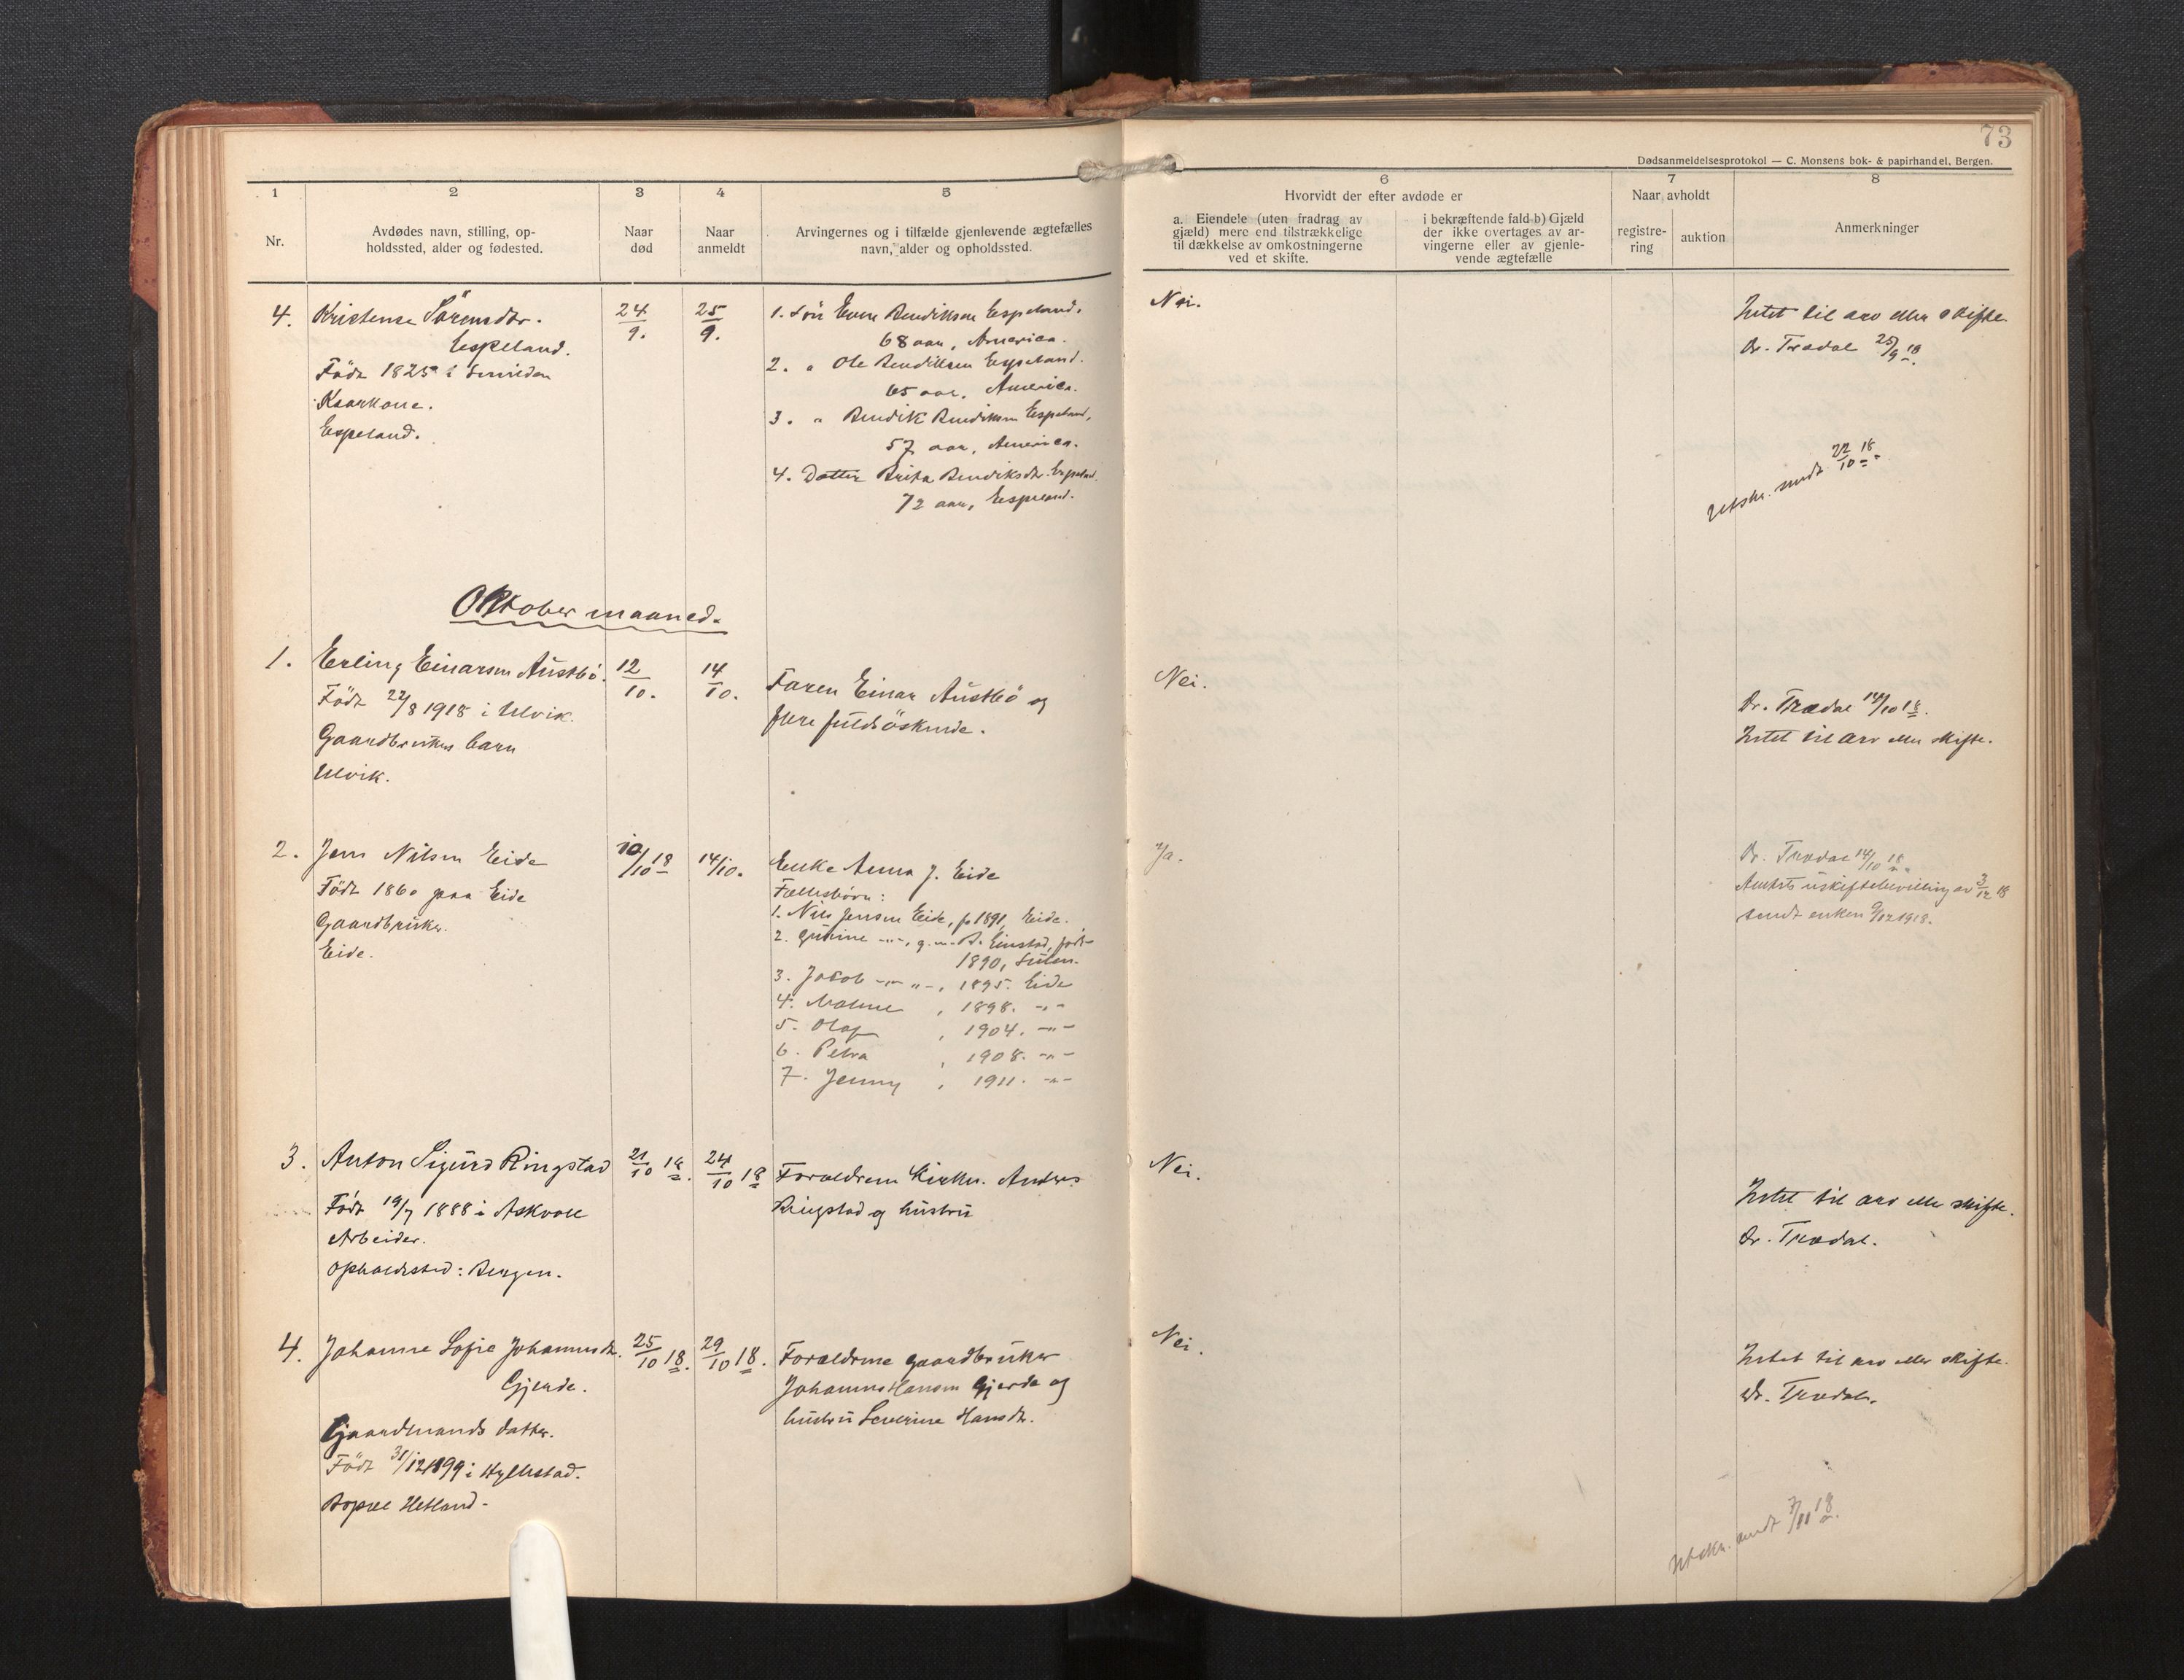 73
Dødsanmeldelsesprotokol — C. Monsens bok- & papirhandel, Bergen.
1
2
3
4
5
6
7
8
Nr.
Avdødes navn, stilling, op-
holdssted, alder og fødested.
Naar
død
Naar
anmeldt
Arvingernes og i tilfælde gjenlevende ægtefælles
navn, alder og opholdssted.
Hvorvidt der efter avdøde er
a. Eiendele (uten fradrag av
gjæld) mere end tilstrækkelige
til dækkelse av omkostningerne
ved et skifte.
i bekræftende fald b) Gjæld
der ikke overtages av ar-
vingerne eller av gjenle-
vende ægtefælle
Naar avholdt
registre-
ring
auktion
Anmerkninger
4.
Kristense Sörensdtr.
Espeland.
Född 1825 i
Espeland.
24/9.
25/9.
1. Sön Bendiksen Espeland,
68 aar, America.
2. " Ole Bendiksen Espeland.
65 aar, America.
3. " Bendik Bendiksen Espeland,
57 aar, America.
4. Datter Brita Bendiksdtr. Espeland.
72 aar, Espeland.
Nei.
Intet til arv eller skifte
Dr. Trædal 25/9 18.
Utskr. sendt 22/10 18.
Oktober maaned.
1.
Erling Einarsen Austbö.
Född 22/8 1918 i Ulvik.
Gaardbrukers barn
Ulvik.
12/10.
14/10.
Faren Einar Austbö og
flere fuldsöskende.
Nei.
Dr. Trædal 14/10 18.
Intet til arv eller skifte.
2.
Jens Nilsen Eide
Född 1860 paa Eide
Gaardbruker.
Eide.
10/10 18
14/10.
Enke Anna J. Eide
Fællesbörn:
1. Nils Jensen Eide, f. 1891, Eide.
2. -"-, g.m. Einstad, född
1890,
3. Jakob -"- "-, 1895. Eide
4. , 1898. -"-
5. Olaf , 1904. -"-
6. Petra , 1908. -"-
7. Jenny , 1911. -"-
Ja.
Dr. Trædal 14/10 18.
Amtets uskiftebevilling av 3/12 18
sendt enken 9/12 1918.
3.
Anton Sigurd Ringstad
Född 19/7 1888 i Askvoll
Arbeider.
Opholdssted: Bergen.
21/10 18.
24/10 18
Forældrene Kirkes. Anders
Ringstad og hustru
Nei.
Intet til arv eller skifte.
Dr. Trædal.
4.
Johanne Sofie Johannesdtr.
Gjerde.
Gaardmands datter.
Född 31/12 1899 i Hyllestad.
Bopæl Hetland.
25/10 18.
29/10 18.
Forældrene gaardbruker
Johannes Hansen Gjerde og
hustru Severine Hansdtr.
Nei.
Intet til arv eller skifte.
Dr. Trædal.
Utskr. sendt 7/11 18.